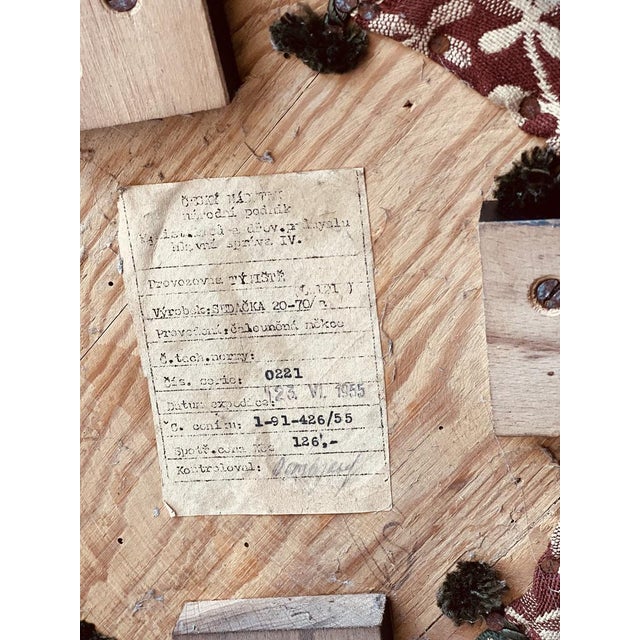 ČESKÝ
národní podnik
průmyslu
Hlavní správa IV.
Provozovna TÝNIŠTĚ
( 121 )
Výrobek: SEDAČKA 20-70/
Provedení: čalounění měkce
Č.tech.normy:
Čís. serie: 0221
Datum expedice: 23. VI. 1955
Č. ceníku: 1-91-426/55
Spotř.cena Kčs 126,-
Kontroloval: